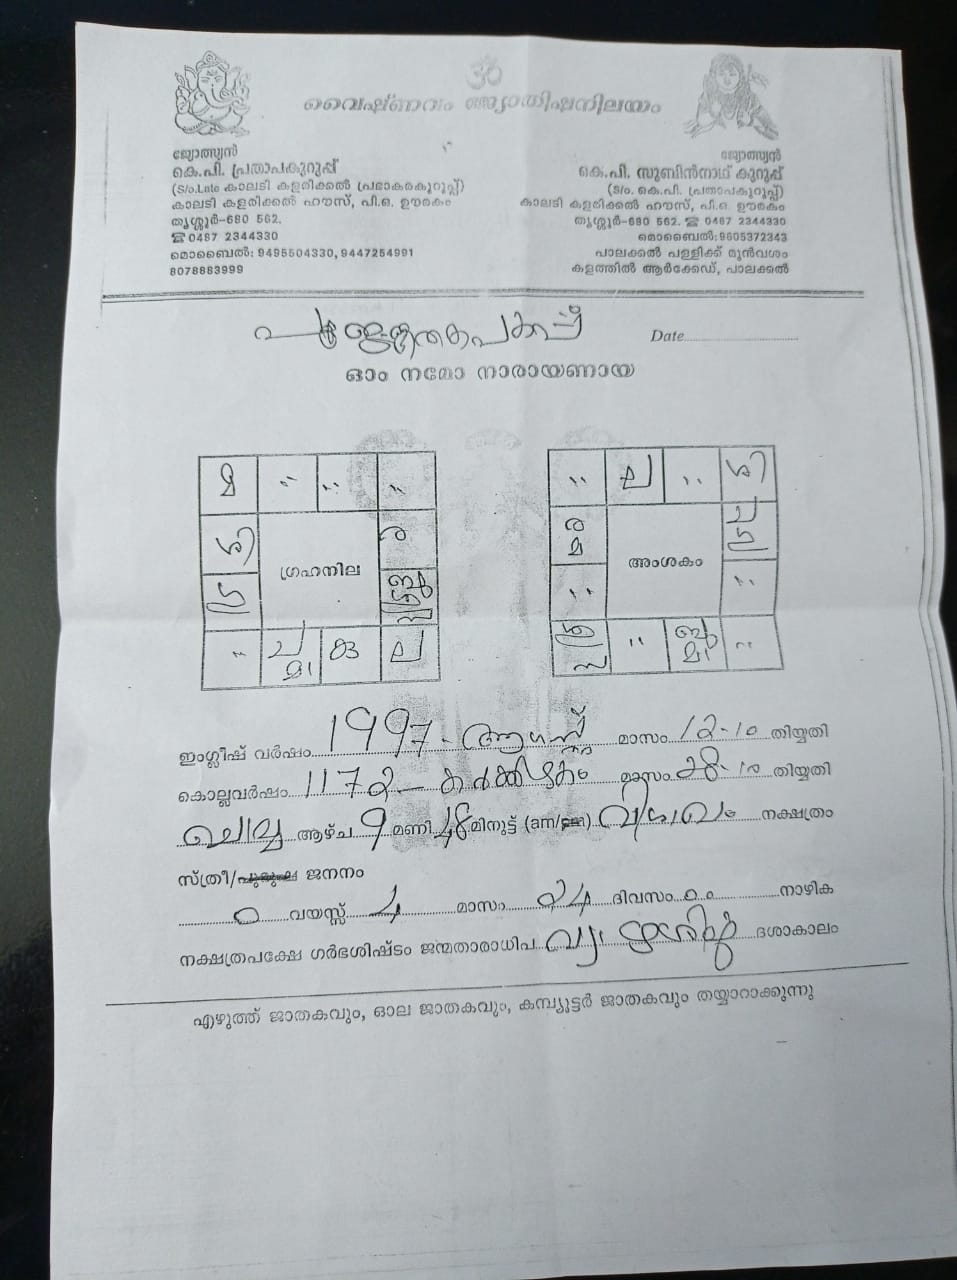 ॐ
വൈഷ്ണവം ജ്യോതിഷനിലയം
ജ്യോത്സ്യൻ
കെ.പി. പ്രതാപകുറുപ്പ്
(S/o.Late കാലടി കളരിക്കൽ പ്രഭാകരകുറുപ്പ്)
കാലടി കളരിക്കൽ ഹൗസ്, പി.ഒ. ഊരകം
തൃശ്ശൂർ-680 562.
☎ 0487 2344330
മൊബൈൽ: 9495504330, 9447254991
8078883999
ജ്യോത്സ്യൻ
കെ.പി. സുബിൻനാഥ് കുറുപ്പ്
(S/o. കെ.പി. പ്രതാപകുറുപ്പ്)
കാലടി കളരിക്കൽ ഹൗസ്, പി.ഒ. ഊരകം
തൃശ്ശൂർ-680 562. ☎ 0487 2344330
മൊബൈൽ: 9605372343
പാലക്കൽ പള്ളിക്ക് മുൻവശം
കളത്തിൽ ആർക്കേഡ്, പാലക്കൽ
Date
ഓം നമോ നാരായണായ
മ
ശി
ര
ഗ്രഹനില
ബു
ച കു ല
മാ
ല ശി
ര
മ
അംശകം
ച
ബു
മാ
ഇംഗ്ലീഷ് വർഷം 1997 - ആഗസ്റ്റ് മാസം 12-10 തിയ്യതി
കൊല്ലവർഷം 1172 - കർക്കിടകം മാസം 28-10 തിയ്യതി
ചൊവ്വ ആഴ്ച 9 മണി 48 മിനുട്ട് (am/pm) വിശാഖം നക്ഷത്രം
സ്ത്രീ/പുരുഷ ജനനം
0 വയസ്സ് 4 മാസം 24 ദിവസം നാഴിക
നക്ഷത്രപക്ഷേ ഗർഭശിഷ്ടം ജന്മതാരാധിപ ദശാകാലം
എഴുത്ത് ജാതകവും, ഓല ജാതകവും, കമ്പ്യൂട്ടർ ജാതകവും തയ്യാറാക്കുന്നു